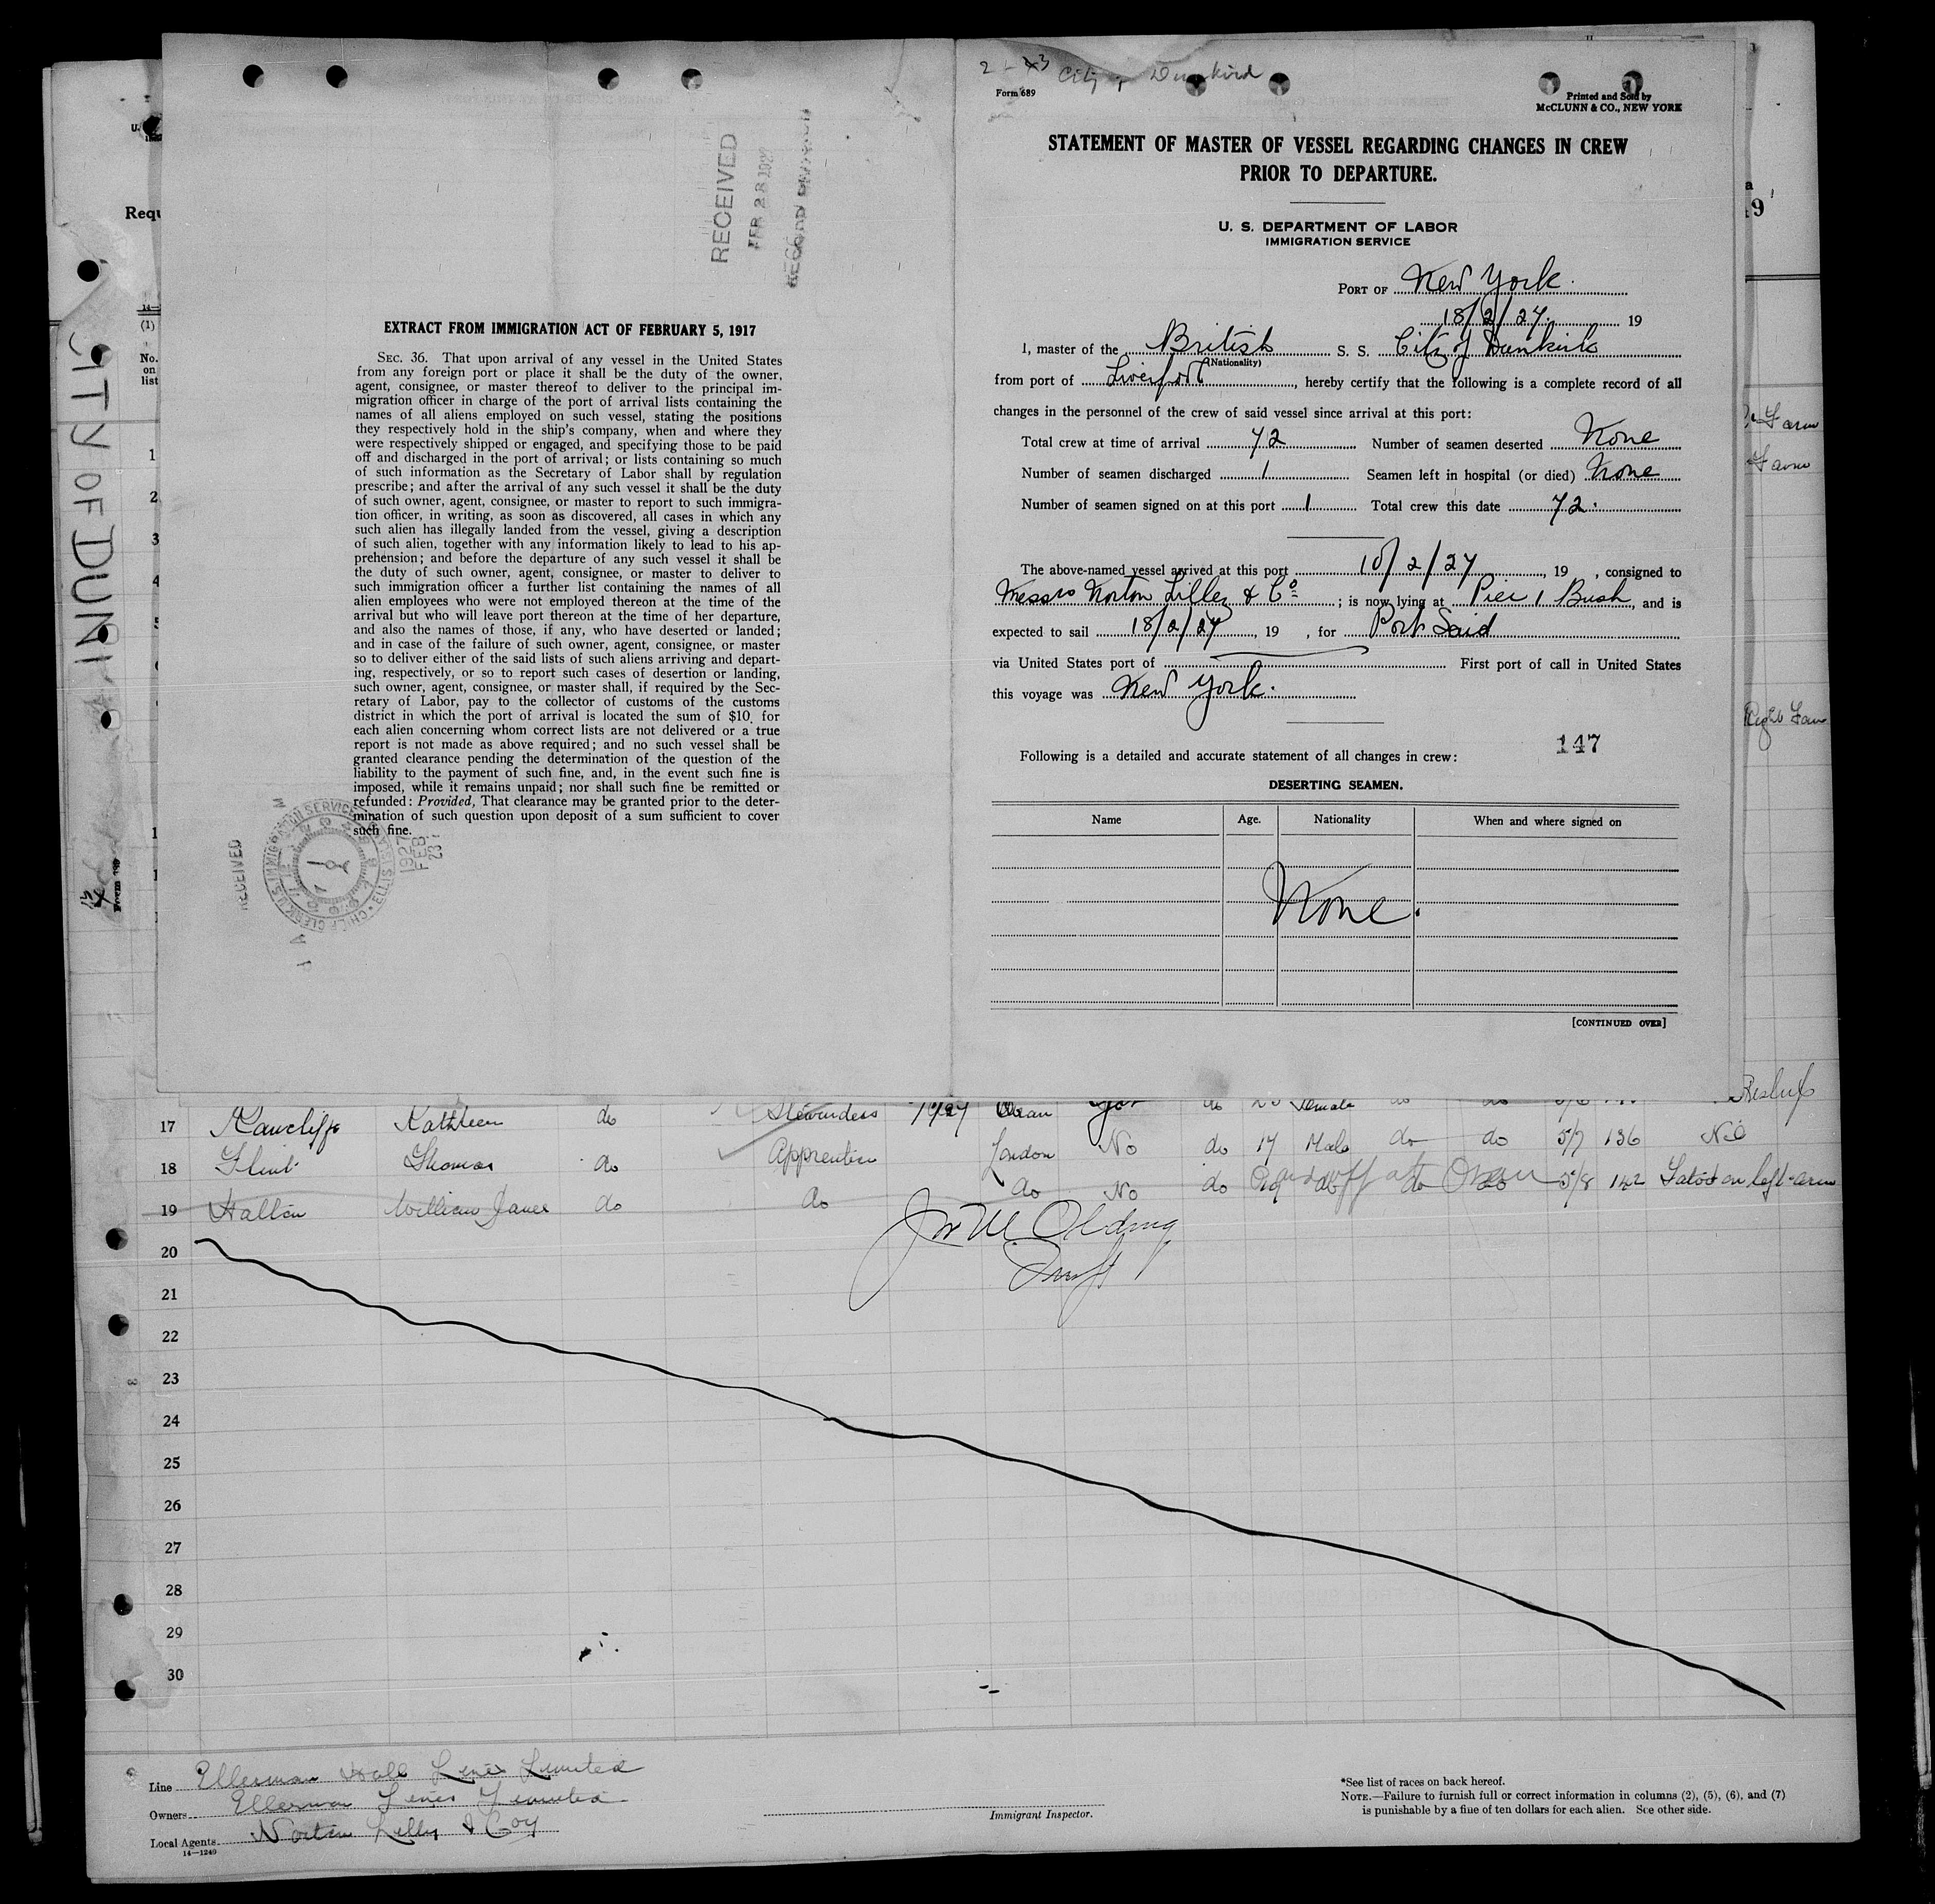 CITY OF DUNK
Requ
RECEIVED
FEB 28 192
RECORD DIVISION
EXTRACT FROM IMMIGRATION ACT OF FEBRUARY 5, 1917
SEC. 36. That upon arrival of any vessel in the United States
from any foreign port or place it shall be the duty of the owner,
agent, consignee, or master thereof to deliver to the principal im-
migration officer in charge of the port of arrival lists containing the
names of all aliens employed on such vessel, stating the positions
they respectively hold in the ship's company, when and where they
were respectively shipped or engaged, and specifying those to be paid
off and discharged in the port of arrival; or lists containing so much
of such information as the Secretary of Labor shall by regulation
prescribe; and after the arrival of any such vessel it shall be the duty
of such owner, agent, consignee, or master to report to such immigra-
tion officer, in writing, as soon as discovered, all cases in which any
such alien has illegally landed from the vessel, giving a description
of such alien, together with any information likely to lead to his ap-
prehension; and before the departure of any such vessel it shall be
the duty of such owner, agent, consignee, or master to deliver to
such immigration officer a further list containing the names of all
alien employees who were not employed thereon at the time of the
arrival but who will leave port thereon at the time of her departure,
and also the names of those, if any, who have deserted or landed;
and in case of the failure of such owner, agent, consignee, or master
so to deliver either of the said lists of such aliens arriving and depart-
ing, respectively, or so to report such cases of desertion or landing,
such owner, agent, consignee, or master shall, if required by the Sec-
retary of Labor, pay to the collector of customs of the customs
district in which the port of arrival is located the sum of $10 for
each alien concerning whom correct lists are not delivered or a true
report is not made as above required; and no such vessel shall be
granted clearance pending the determination of the question of the
liability to the payment of such fine, and, in the event such fine is
imposed, while it remains unpaid; nor shall such fine be remitted or
refunded: Provided, That clearance may be granted prior to the deter-
mination of such question upon deposit of a sum sufficient to cover
such fine.
RECEIVED
1927 FEB 23
City of Dunkirk
Form 689
Printed and Sold by
McCLUNN & CO., NEW YORK
STATEMENT OF MASTER OF VESSEL REGARDING CHANGES IN CREW
PRIOR TO DEPARTURE.
U. S. DEPARTMENT OF LABOR
IMMIGRATION SERVICE
PORT OF New York.
18/2/27. 19
I, master of the British S. S. City of Dunkirk
(Nationality)
from port of Liverpool, hereby certify that the following is a complete record of all
changes in the personnel of the crew of said vessel since arrival at this port:
Total crew at time of arrival 72 Number of seamen deserted None
Number of seamen discharged 1 Seamen left in hospital (or died) None
Number of seamen signed on at this port 1 Total crew this date 72.
The above-named vessel arrived at this port 10/2/27, 19 , consigned to
Messrs Norton Lilley & Co; is now lying at Pier 1 Bush, and is
expected to sail 18/2/27, 19 , for Port Said
via United States port of First port of call in United States
this voyage was New York.
147
Following is a detailed and accurate statement of all changes in crew:
DESERTING SEAMEN.
Name Age. Nationality When and where signed on
None.
[CONTINUED OVER]
17 Rawcliffe Kathleen do Stewardess Yes do Female
18 Flint Thomas do Apprentice London No do 17 Male do do 5/7 136 Nil
19 Hallin William James do do do No do Signed off at Oran 5/8 142 Tatood on left arm
20
21
22
23
24
25
26
27
28
29
30
Line Ellerman Hall Line Limited
Owners Ellerman Lines Limited
Local Agents Norton Lilly & Coy
14—1240
Immigrant Inspector.
*See list of races on back hereof.
NOTE.—Failure to furnish full or correct information in columns (2), (5), (6), and (7)
is punishable by a fine of ten dollars for each alien. See other side.